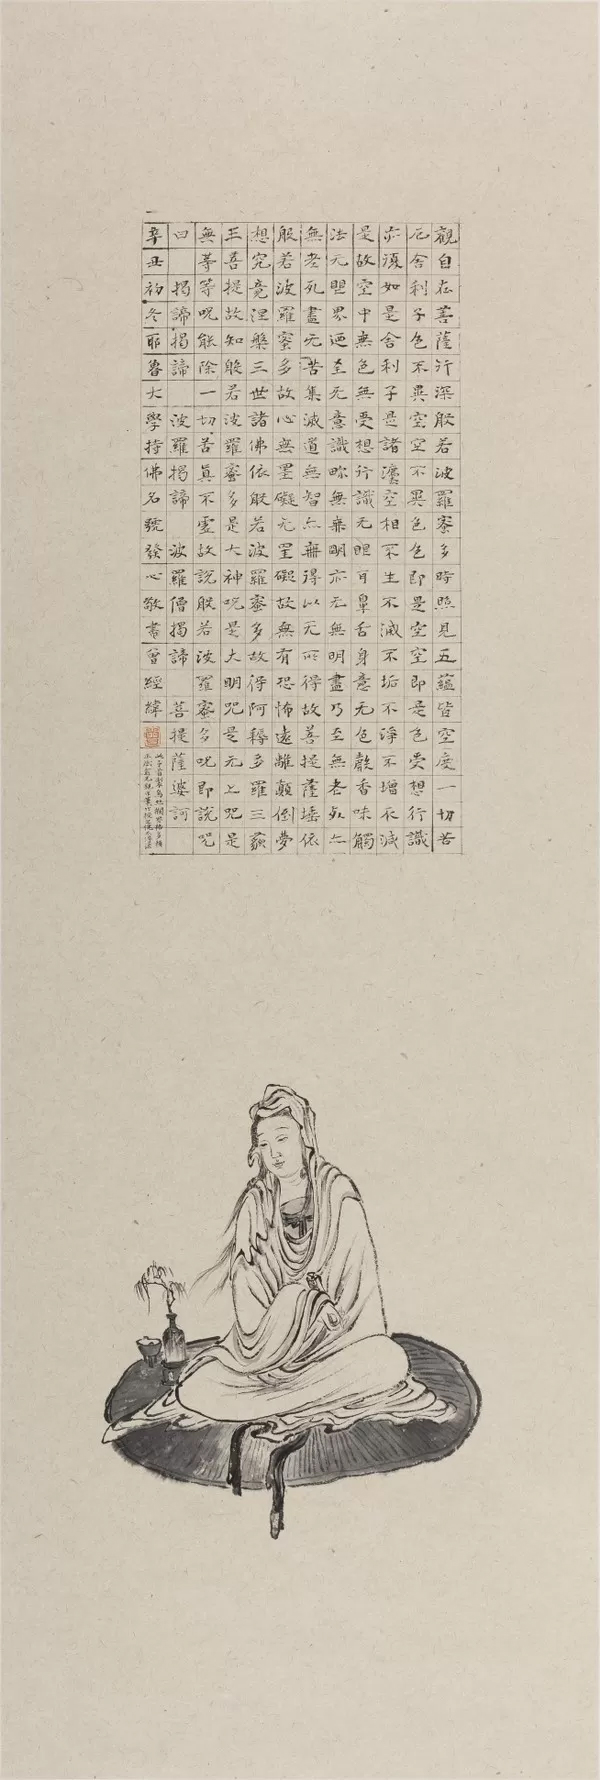 觀自在菩薩行深般若波羅蜜多時照見五蘊皆空度一切苦
厄舍利子色不異空空不異色色即是空空即是色受想行識
亦復如是舍利子是諸灋空相不生不滅不垢不淨不增不減
是故空中無色無受想行識无眼耳鼻舌身意无色聲香味觸
法无眼界迺至无意識畍無橆明亦无無明盡乃至無老死亦
無老死盡无苦集滅道無智亦橆得以无所得故菩提薩埵依
般若波羅蜜多故心無罣礙无罣礙故無有恐怖遠離顛倒夢
想究竟涅槃三世諸佛依般若波羅蜜多故得阿耨多羅三藐
三菩提故知般若波羅蜜多是大神呪是大明咒是无上咒是
無等等呪能除一切苦真不虛故說般若波羅蜜多呪即說咒
曰 揭諦揭諦 波羅揭諦 波羅僧揭諦 菩提薩婆訶
辛丑初冬耶魯大學持佛名號發心敬書曾經緯